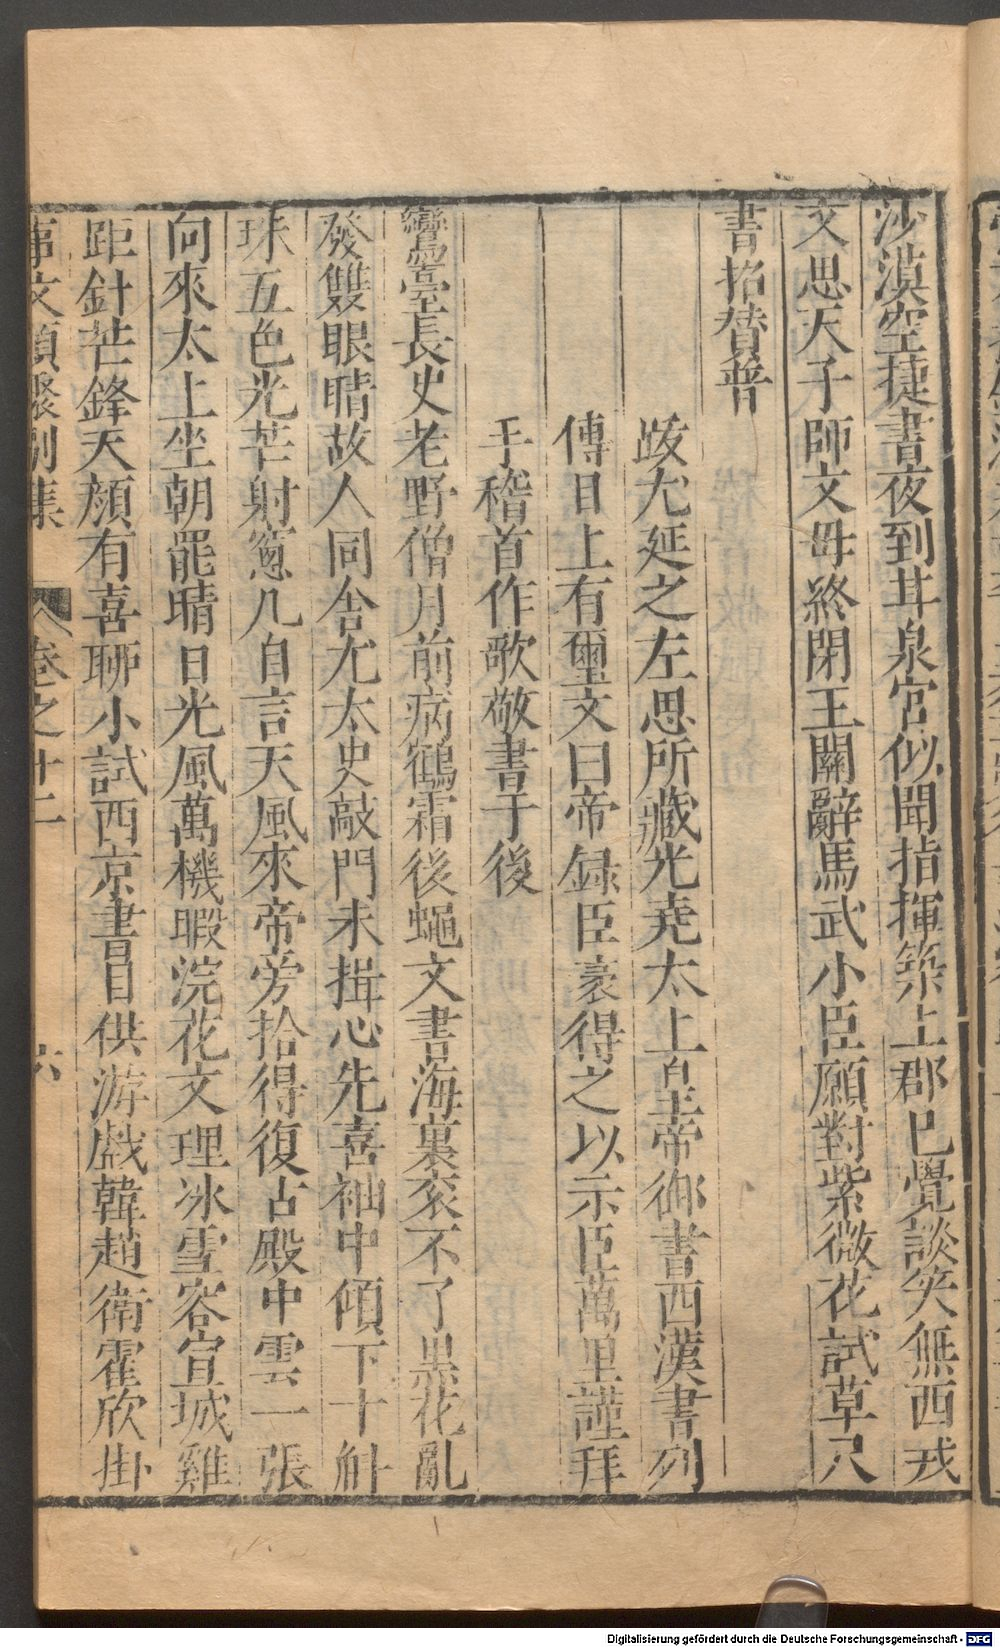 沙漠空捷書夜到甘泉宮似聞指揮築上郡已覺談笑無西戎
文思天子師文母終閉玉關辭馬武小臣願對紫微花試草尺
書招賛普
跋尤延之左思所藏光堯太上皇帝御書西漢書列
傳目上有璽文曰帝録臣袤得之以示臣萬里謹拜
手稽首作歌敬書于後
鸞臺長史老野僧月前病鶴霜後蠅文書海裏衮不了黒花亂
發雙眼睛故人同舍尤太史敲門未揖心先喜袖中傾下十斛
珠五色光芒射窻几自言天風來帝旁拾得復古殿中雲一張
向來太上坐朝罷晴日光風萬機暇浣花文理冰雪容宣城雞
距針芒鋒天顔有喜聊小試西京書目供游戲韓趙衛霍欣掛
事文類聚别集 卷之十二 六
Digitalisierung gefördert durch die Deutsche Forschungsgemeinschaft - DFG